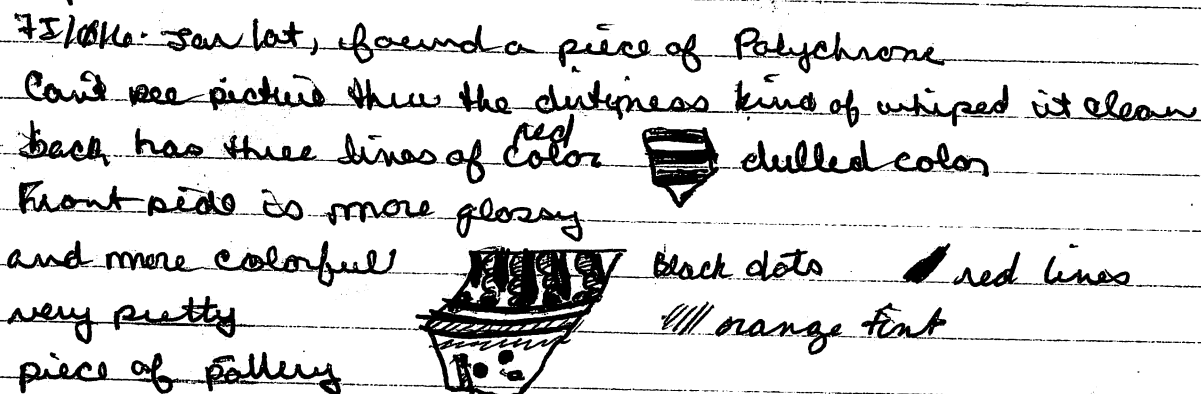 found a piece of Polychrome
Can't see picture thru the dirtyness kind of whiped it clean
back has three lines of red color dulled color
Front side is more glossy
and more colorful black dots red lines
very pretty orange tint
piece of pottery